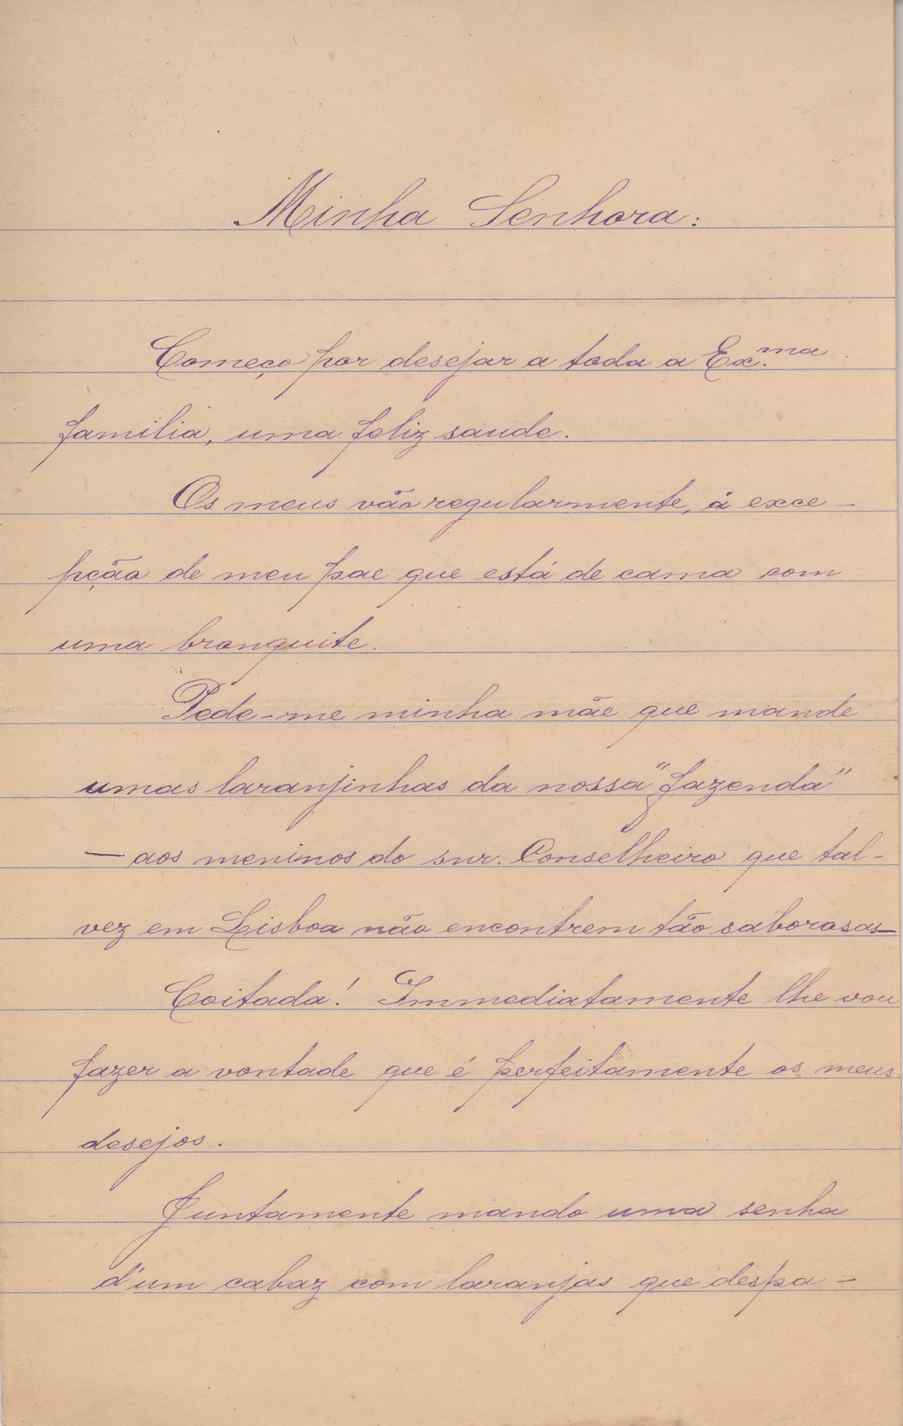 Minha Senhora:
Começo por desejar a toda a Ex.ma
familia, uma feliz saude.
Os meus vão regularmente, á exce-
pção de meu pae que está de cama com
uma bronquite.
Pede-me minha mãe que mande
umas laranjinhas da nossa "fazenda"
— aos meninos do snr. Conselheiro que tal-
vez em Lisboa não encontrem tão saborosas—
Coitada! Immediatamente lhe vou
fazer a vontade que é perfeitamente os meus
desejos.
Juntamente mando uma senha
d'um cabaz com laranjas que despa-